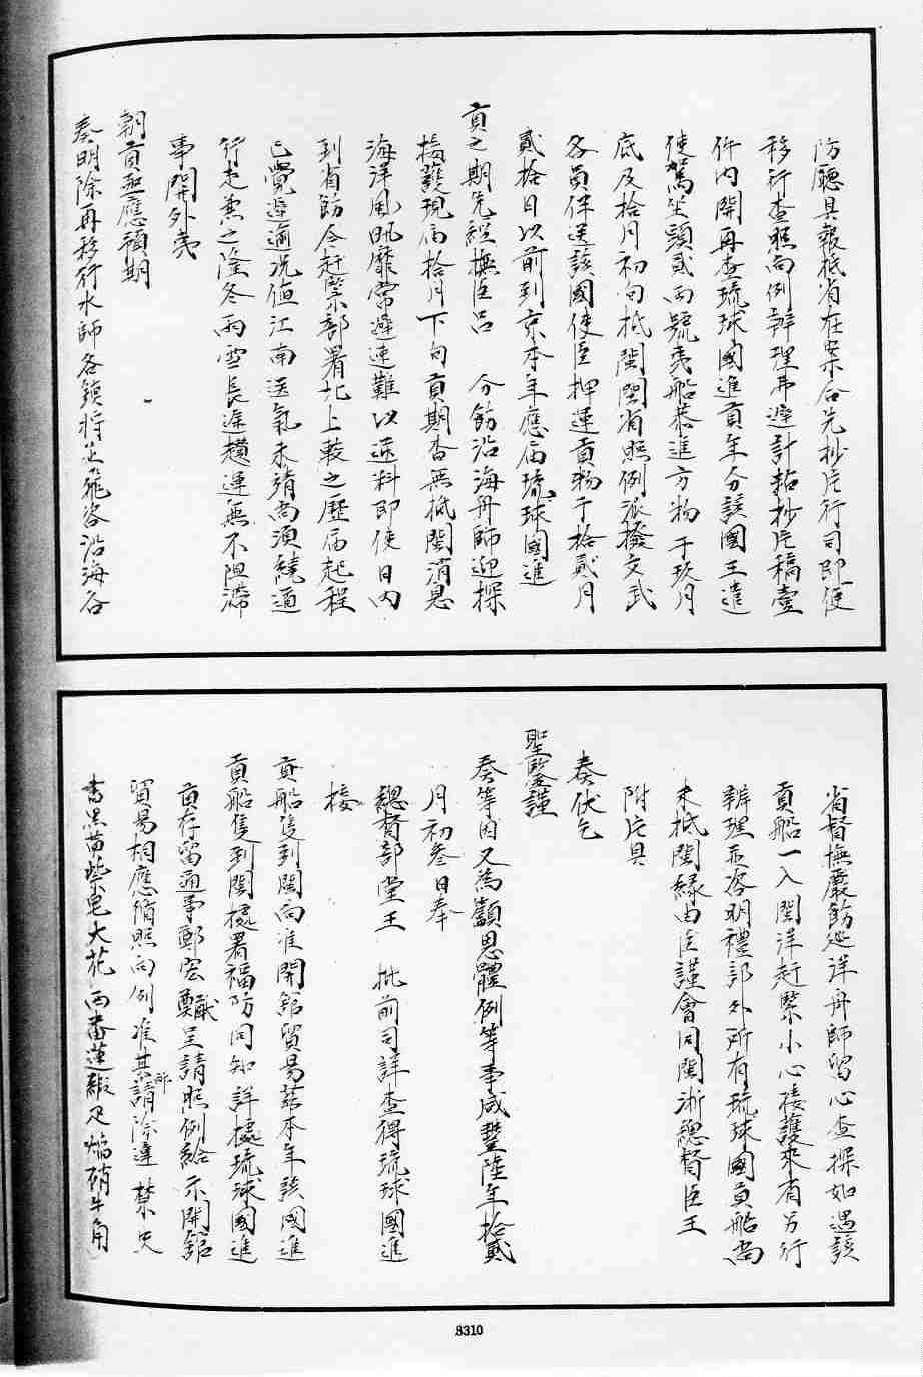 防廳具報抵省在案合先抄片行司即便
移行查照向例辦理毋遲計粘抄片稿壹
件內開再查琉球國進貢年分該國王遣
使駕坐頭貳兩號夷船恭進方物于玖月
底及拾月初旬抵閩閩省照例派撥文武
各員伴送該國使臣押運貢物于拾貳月
貳拾日以前到京本年應届琉球國進
貢之期先經撫臣呂 分飭沿海舟師迎探
接護現届拾月下旬貢期杳無抵閩消息
海洋風汛靡常遲速難以逆料即使日內
到省飭令赶緊部署北上較之歷届起程
已覺遲逾況值江南逆氛未靖尚須繞道
行走兼之隆冬雨雪長途攢運無不阻滯
事關外夷
朝貢亟應預期
奏明除再移行水師各鎮將並飛咨沿海各
省督撫嚴飭巡洋舟師留心查探如遇該
貢船一入閩洋赶緊小心接護來省另行
辦理並咨明禮部外所有琉球國貢船尚
未抵閩緣由臣謹會同閩浙總督臣王
附片具
奏伏乞
聖鑒謹
奏等因又為籲恩體例等事咸豐陸年拾貳
月初叁日奉
總督部堂王 批前司詳查得琉球國進
接
貢船隻到閩向准開館貿易茲本年該國進
貢船隻到閩據署福防同知詳據琉球國進
貢存留通事鄭宏猷呈請照例給示開館
貿易相應循照向例准其所請除違禁史
書黑黃紫皂大花西番蓮緞疋焰硝牛角
8310